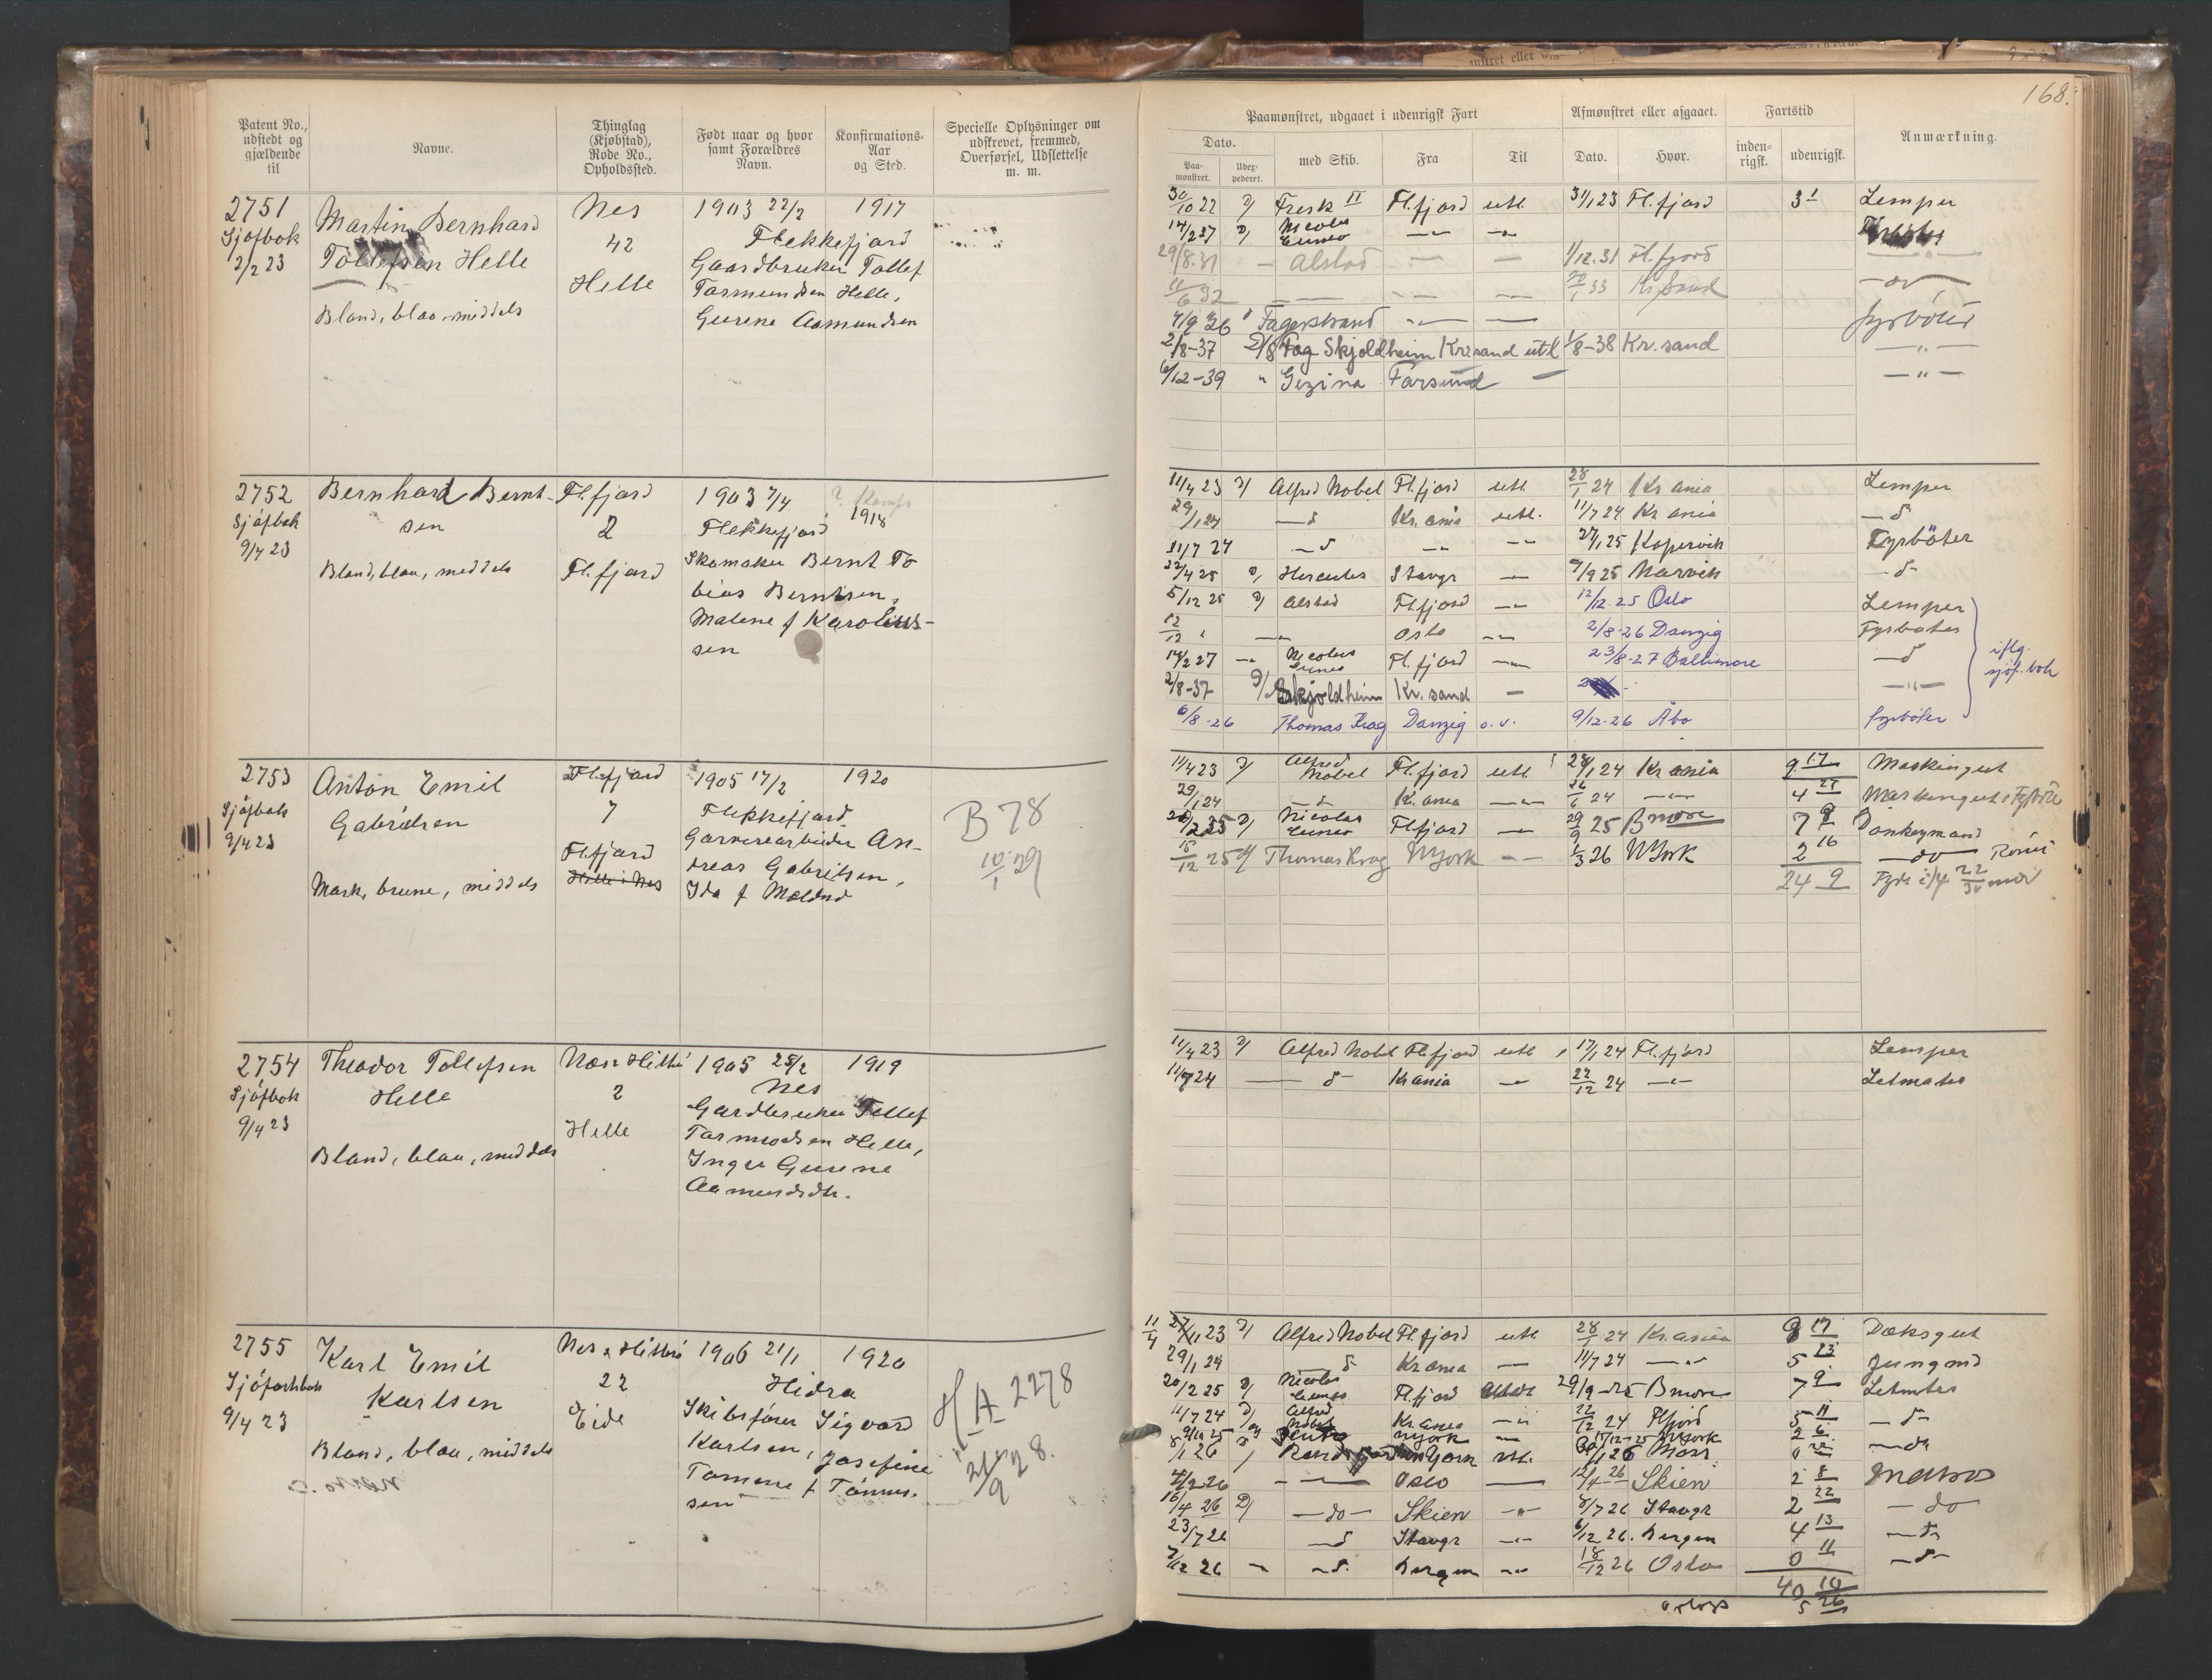 168.
Patent No., udstedt og gjældende til
Navne.
Thinglag (Kjøbstad), Rode No., Opholdssted.
Født naar og hvor samt Forældres Navn.
Konfirmations-Aar og Sted.
Specielle Oplysninger om udskrevet, fremmed, Overførsel, Udslettelse m. m.
Paamønstret, udgaaet i udenrigsk Fart
Dato.
Paa-mønstret.
Udex-pederet.
med Skib.
Fra
Til
Afmønstret eller afgaaet.
Dato.
Hvor.
Fartstid
inden-rigsk.
udenrigsk.
Anmærkning.
2751
Sjøfbok
2/2 23
Martin Bernhard
Tollefsen Helle
Bland, blaa, middels
Nes
42
Helle
1903 22/2 1917
Flekkefjord
Gaardbruker Tollef
Tormundsen Helle,
Gurine Aamundsen
30/10 22 Fresk II Fl.fjord utl 31/1 23 Fl.fjord 3 1 Lemper
14/2 27 Nicolas Cuneo — —
29/8.31 — Alstad — — 1/12.31 Fl.fjord
11/6 32 — — — 20/1 33 Kr.sand — do —
4/9 36 Fagerstrand — — fyrbøter
2/8-37 Skjoldheim Kr.sand utl 1/8-38 Kr.sand — „ —
6/12-39 „ Gezina Farsund — — „ —
2752
Sjöfbok
9/4 23
Bernhard Bernt-
sen
Bland, blaa, middels
Fl.fjord
2
Fl.fjord
1903 7/4 1918
Flekkefjord
Skomaker Bernt To
bias Berntsen,
Malene f Karolius-
sen
11/4 23 Alfred Nobel Fl.fjord utl 28/1 24 Kr.ania Lemper
29/1 24 — d Kr.ania utl. 11/7 24 Kr ania — d
11/7 24 — d — — 27/1 25 Kopervik Fyrböter
22/4 25 Hercules Stavgr — 9/9 25 Narvik — d —
5/12 25 Alstad Fl.fjord — 12/12.25 Oslo Lemper
12/12 „ — Oslo — 2/8.26 Danzig Fyrbøter
14/2 27 — Nicolas Cuneo Fl.fjord — 23/8-27 Baltimore — d
2/8-37 Skjoldheim Kr.sand — — „ —
6/8-26 Thomas Krag Danzig o.v. 9/12-26 Åbo fyrbøter
iflg. sjöf.bok
2753
Sjöfbok
9/4 23
Anton Emil
Gabrielsen
Mark, brune, middels
Fl.fjord
7
Fl.fjord
Helle i Nes
1905 17/2 1920
Flekkefjord
Garveriarbeider An-
dreas Gabrielsen,
Ida f Moldrud
B 78
10/1 29
11/4 23 Alfred Nobel Fl.fjord utl 28/1 24 Kr.ania 9 17 Maskingut
29/1 24 — d Kr.ania — 26/6 24 — 4 27
20/2 25 Nicolas Cuneo Fl.fjord — 29/9 25 Bmore 7 9 Donkeymand
15/12 25 Thomas Krag NYork — 1/3 26 NYork 2 16 — do
24 9
2754
Sjöfbok
9/4 23
Theodor Tollefsen
Helle
Bland, blaa, middels
Nes Hitterö
2
Helle
1905 25/2 1919
Nes
Gardbruker Tollef
Tormodsen Helle,
Inger Gurine
Aamundsdtr.
11/4 23 Alfred Nobel Fl.fjord utl 17/1 24 Fl.fjord Lemper
11/7 24 — d — Kr.ania — 22/12 24 — Letmatros
2755
Sjöfartsbok
9/4 23
Karl Emil
Karlsen
Bland, blaa, middels
Nes & Hitterö
22
Eide
1906 21/1 1920
Hidra
Skibsfører Sigvard
Karlsen, Josefine
Tomine f Tönnes-
sen
A 2278
21/9 28.
11/4 23 Alfred Nobel Fl.fjord utl 28/1 24 Kr.ania 9 17 Dæksgut
29/1 24 d Kr.ania — 11/7 24 — 5 13 Jungmd
20/2 25 Nicolas Cuneo Fl.fjord 29/9-25 Bmore 7 9 Letmtrs
11/7 24 Alfred Nobel Kr.ania — 22/12 24 Flfjord 5 11 — d —
NYork — 15/12-25 NYork 2 6
utl. 1 26 Moss — do
Oslo — 12/4-26 Skien 2 8 Matros
16/4 26 — do — Skien — 8/7 26 Stavgr 2 22 — do
23/7 26 — d Stavgr — 6/12 26. Bergen 4 13 — do
7/12 26 — — d. Bergen — 18/12 26 Oslo 0 11 — do —
40 10
5 26